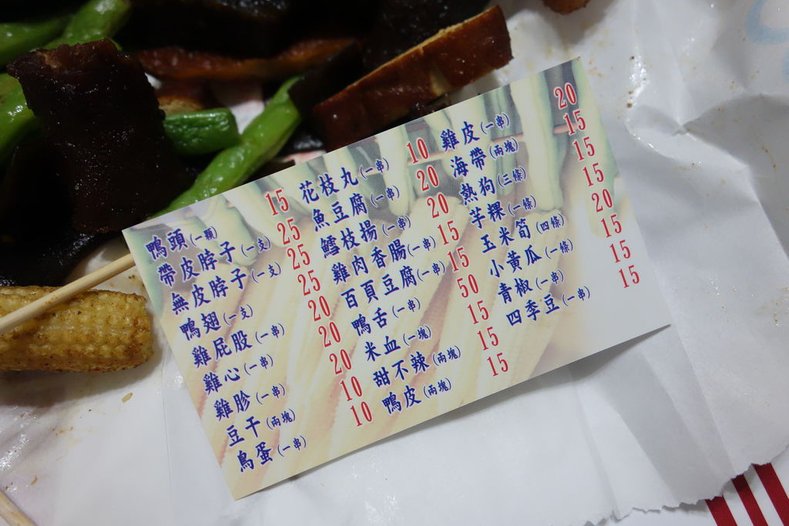 鴨頭(一顆) 15
帶皮脖子(一支) 25
無皮脖子(一支) 25
鴨翅(一支) 25
雞屁股(一串) 20
雞心(一串) 20
雞胗(一串) 20
豆干(兩塊) 10
鳥蛋(一串) 10
花枝丸(一串) 10
魚豆腐(一串) 20
鱈枝揚(一串) 20
雞肉香腸(一串)
百頁豆腐(一串) 15
鴨舌(一串) 50
米血(一塊) 15
甜不辣(兩塊) 15
鴨皮(兩塊) 15
雞皮(一串) 20
海帶(兩塊) 15
熱狗(三條) 15
芋粿(一條) 15
玉米筍(四條) 20
小黃瓜(一條) 15
青椒(一串) 15
四季豆(一串) 15